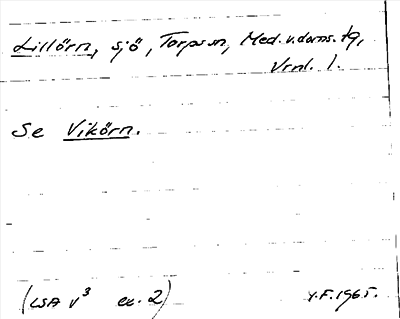 Lillörn, sjö, Torps sn, Med. v. doms. tg,
Vrnl. l.
Se Vikörn.
(LSA V³ ex. 2) Y.F. 1965.